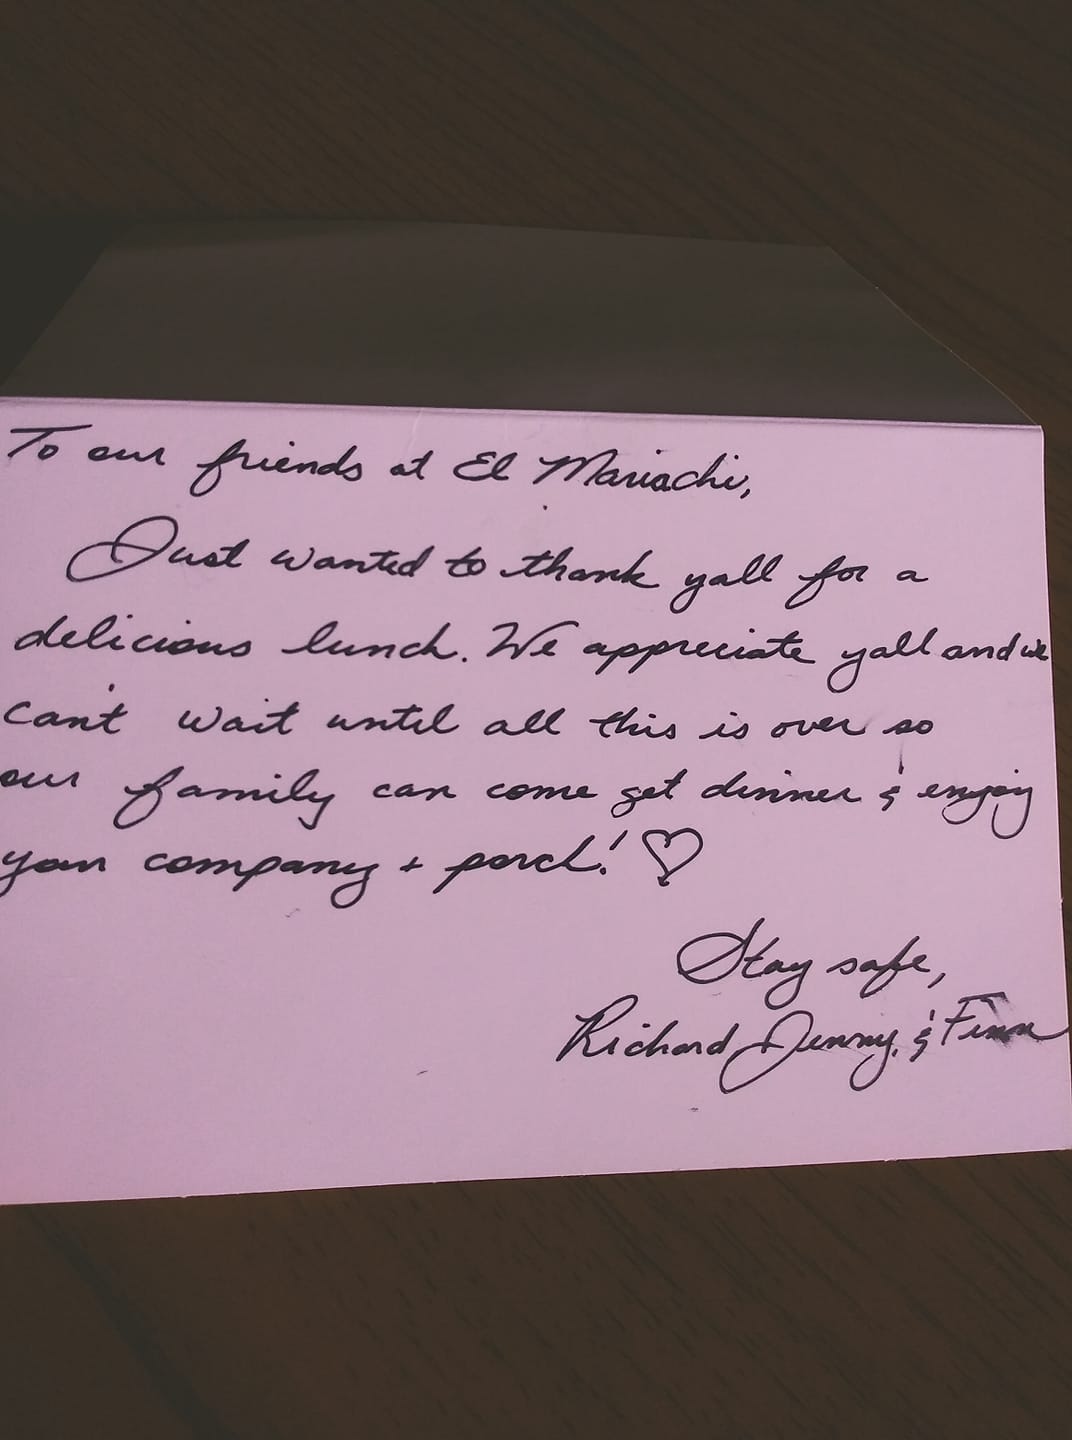 To our friends at El Mariachi,
Just wanted to thank yall for a
delicious lunch. We appreciate yall and we
can't wait until all this is over so
our family can come get dinner & enjoy
your company + porch! ♡
Stay safe,
Richard Jenny, & Finn